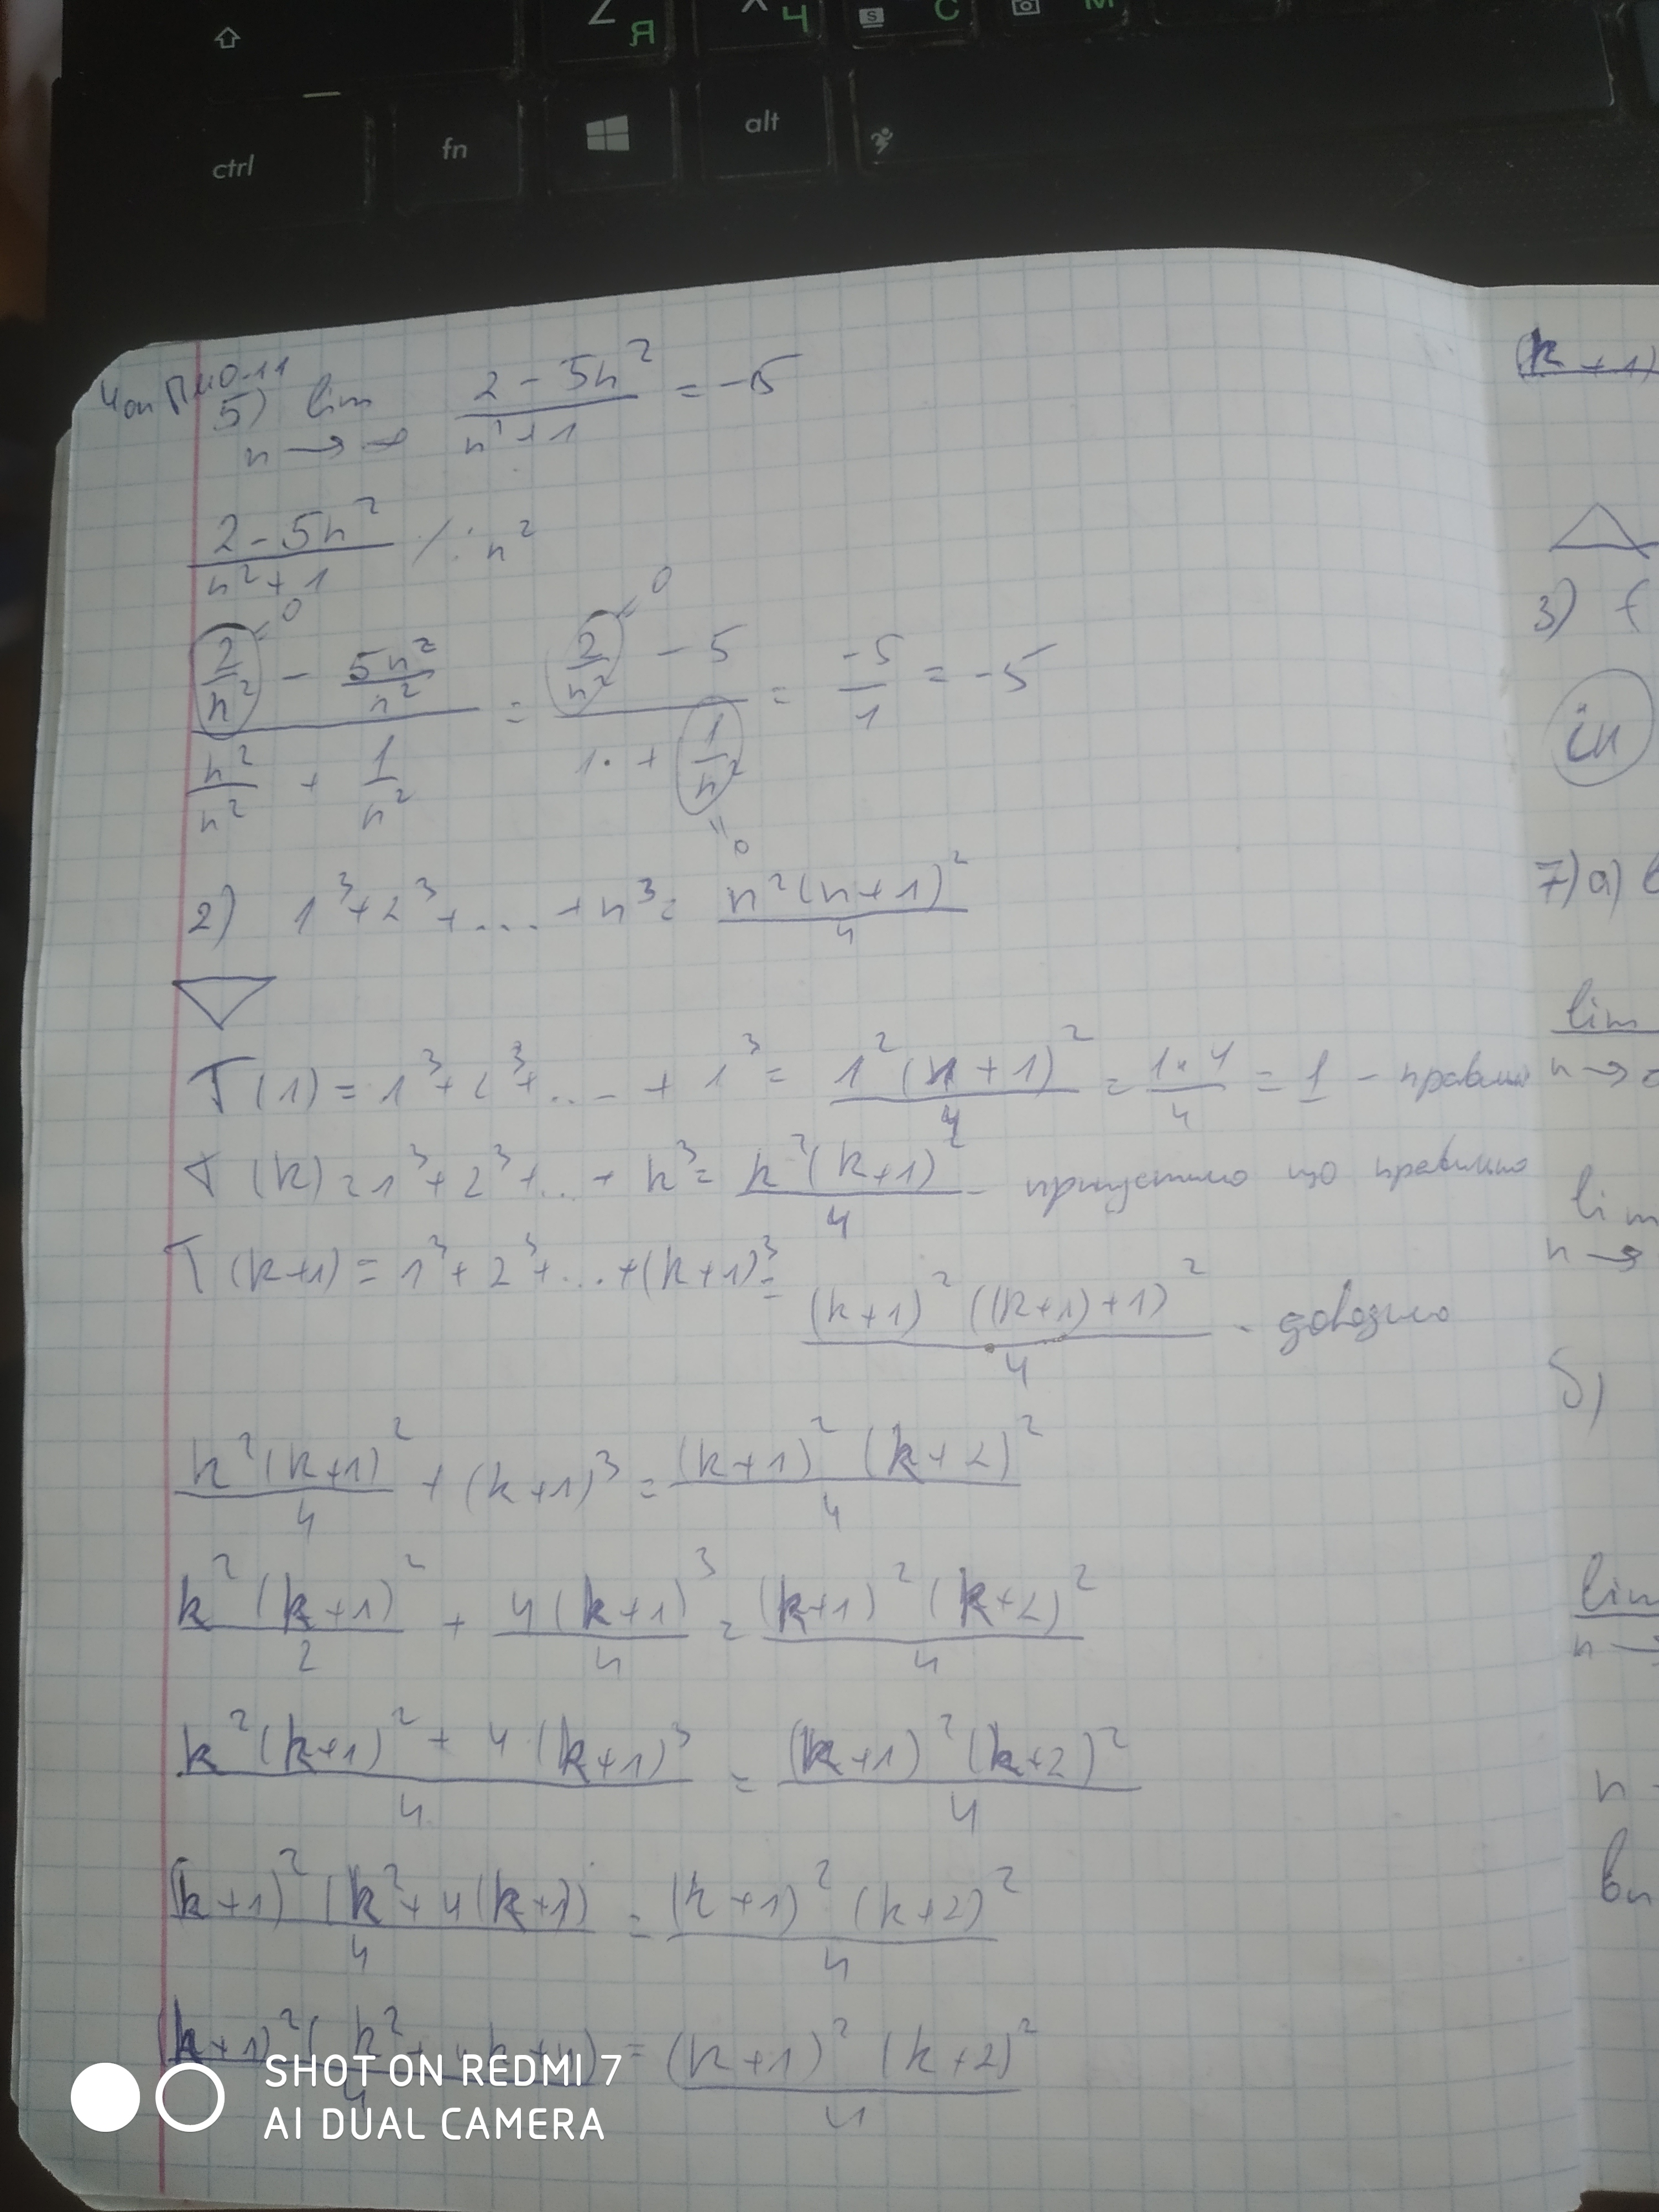 Z Я Ч S C М
ctrl fn alt
Чоп ПМО-11
5) lim n→∞ (2 - 5n²)/(n² + 1) = -5
(2 - 5n²)/(n² + 1) /: n²
(2/n² - 5n²/n²)/(n²/n² + 1/n²) = (2/n² - 5)/(1 + 1/n²) = -5/1 = -5
0 0 0
2) 1³ + 2³ + .... + n³ = n²(n+1)²/4
T(1) = 1³ + 2³ + ... + 1³ = 1²(1+1)²/4 = 1·4/4 = 1 - правильно
T(k) = 1³ + 2³ + ... + k³ = k²(k+1)²/4 - припустимо що правильно
T(k+1) = 1³ + 2³ + ... + (k+1)³ = (k+1)²((k+1)+1)²/4 - довозимо
k²(k+1)²/4 + (k+1)³ = (k+1)²(k+2)²/4
k²(k+1)²/2 + 4(k+1)³/4 = (k+1)²(k+2)²/4
(k²(k+1)² + 4(k+1)³)/4 = (k+1)²(k+2)²/4
(k+1)²(k² + 4(k+1))/4 = (k+1)²(k+2)²/4
(k+1)²(k² + 4k + 4)/4 = (k+1)²(k+2)²/4
(k+1)
3) f
in
7) a) в
lim n→
lim n→
б)
lim n→
n
вп
SHOT ON REDMI 7
AI DUAL CAMERA